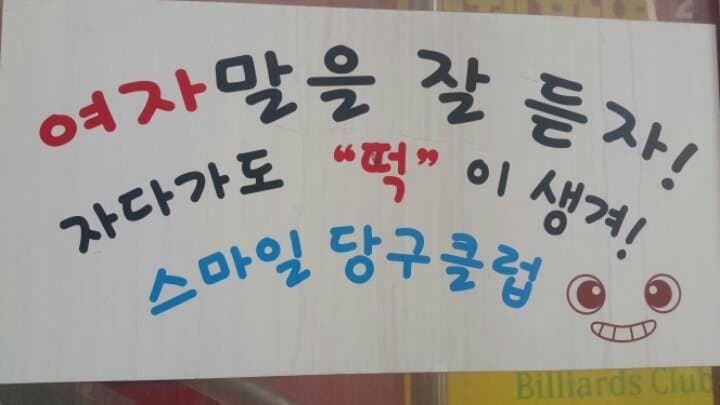 여자말을 잘 듣자!
자다가도 “떡”이 생겨!
스마일 당구클럽
Billiards Club